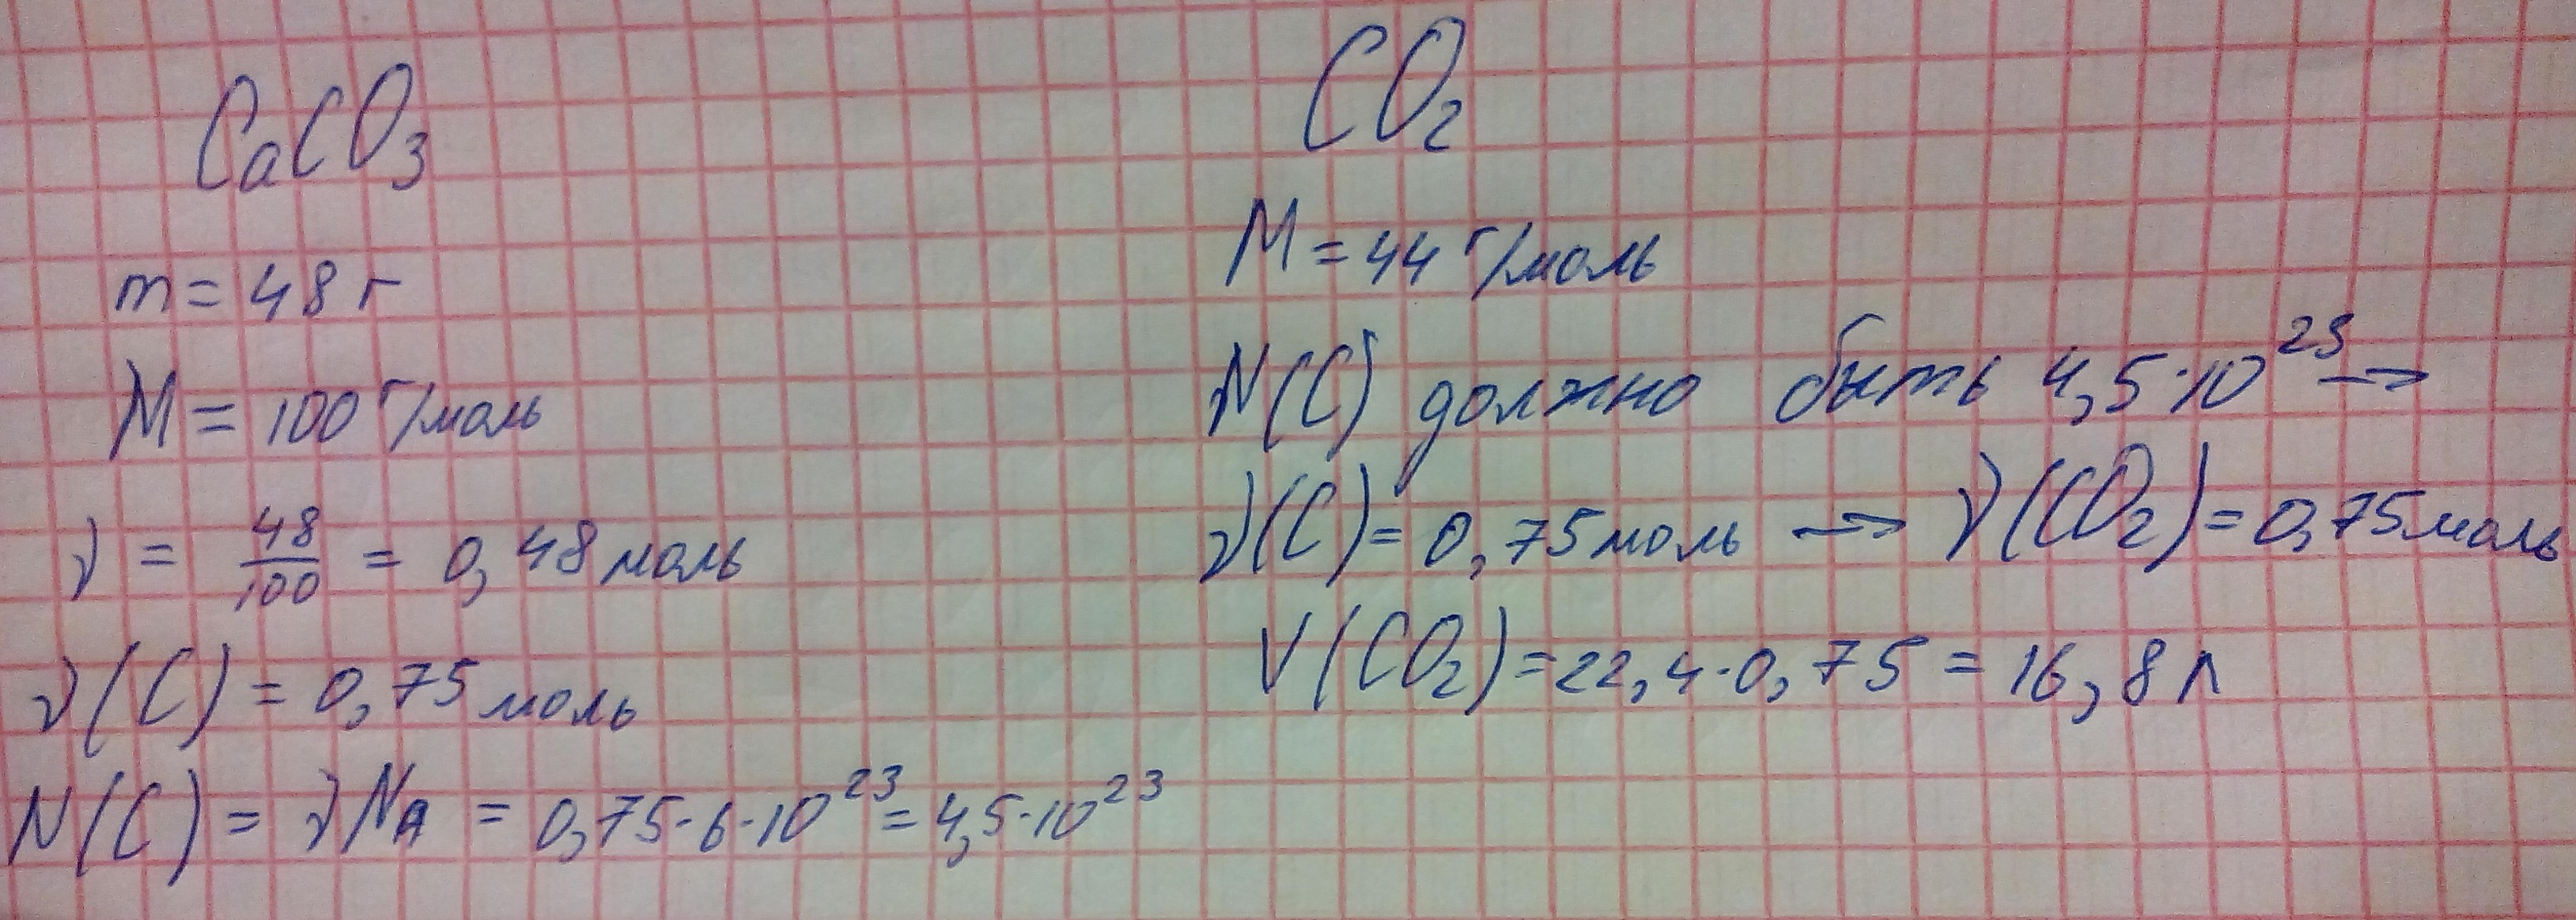 CaCO₃
m = 48 г
M = 100 г/моль
ν = 48/100 = 0,48 моль
ν(C) = 0,75 моль
N(C) = νNA = 0,75·6·10²³ = 4,5·10²³
CO₂
M = 44 г/моль
N(C) должно быть 4,5·10²³ →
ν(C) = 0,75 моль → ν(CO₂) = 0,75 моль
V(CO₂) = 22,4·0,75 = 16,8 л